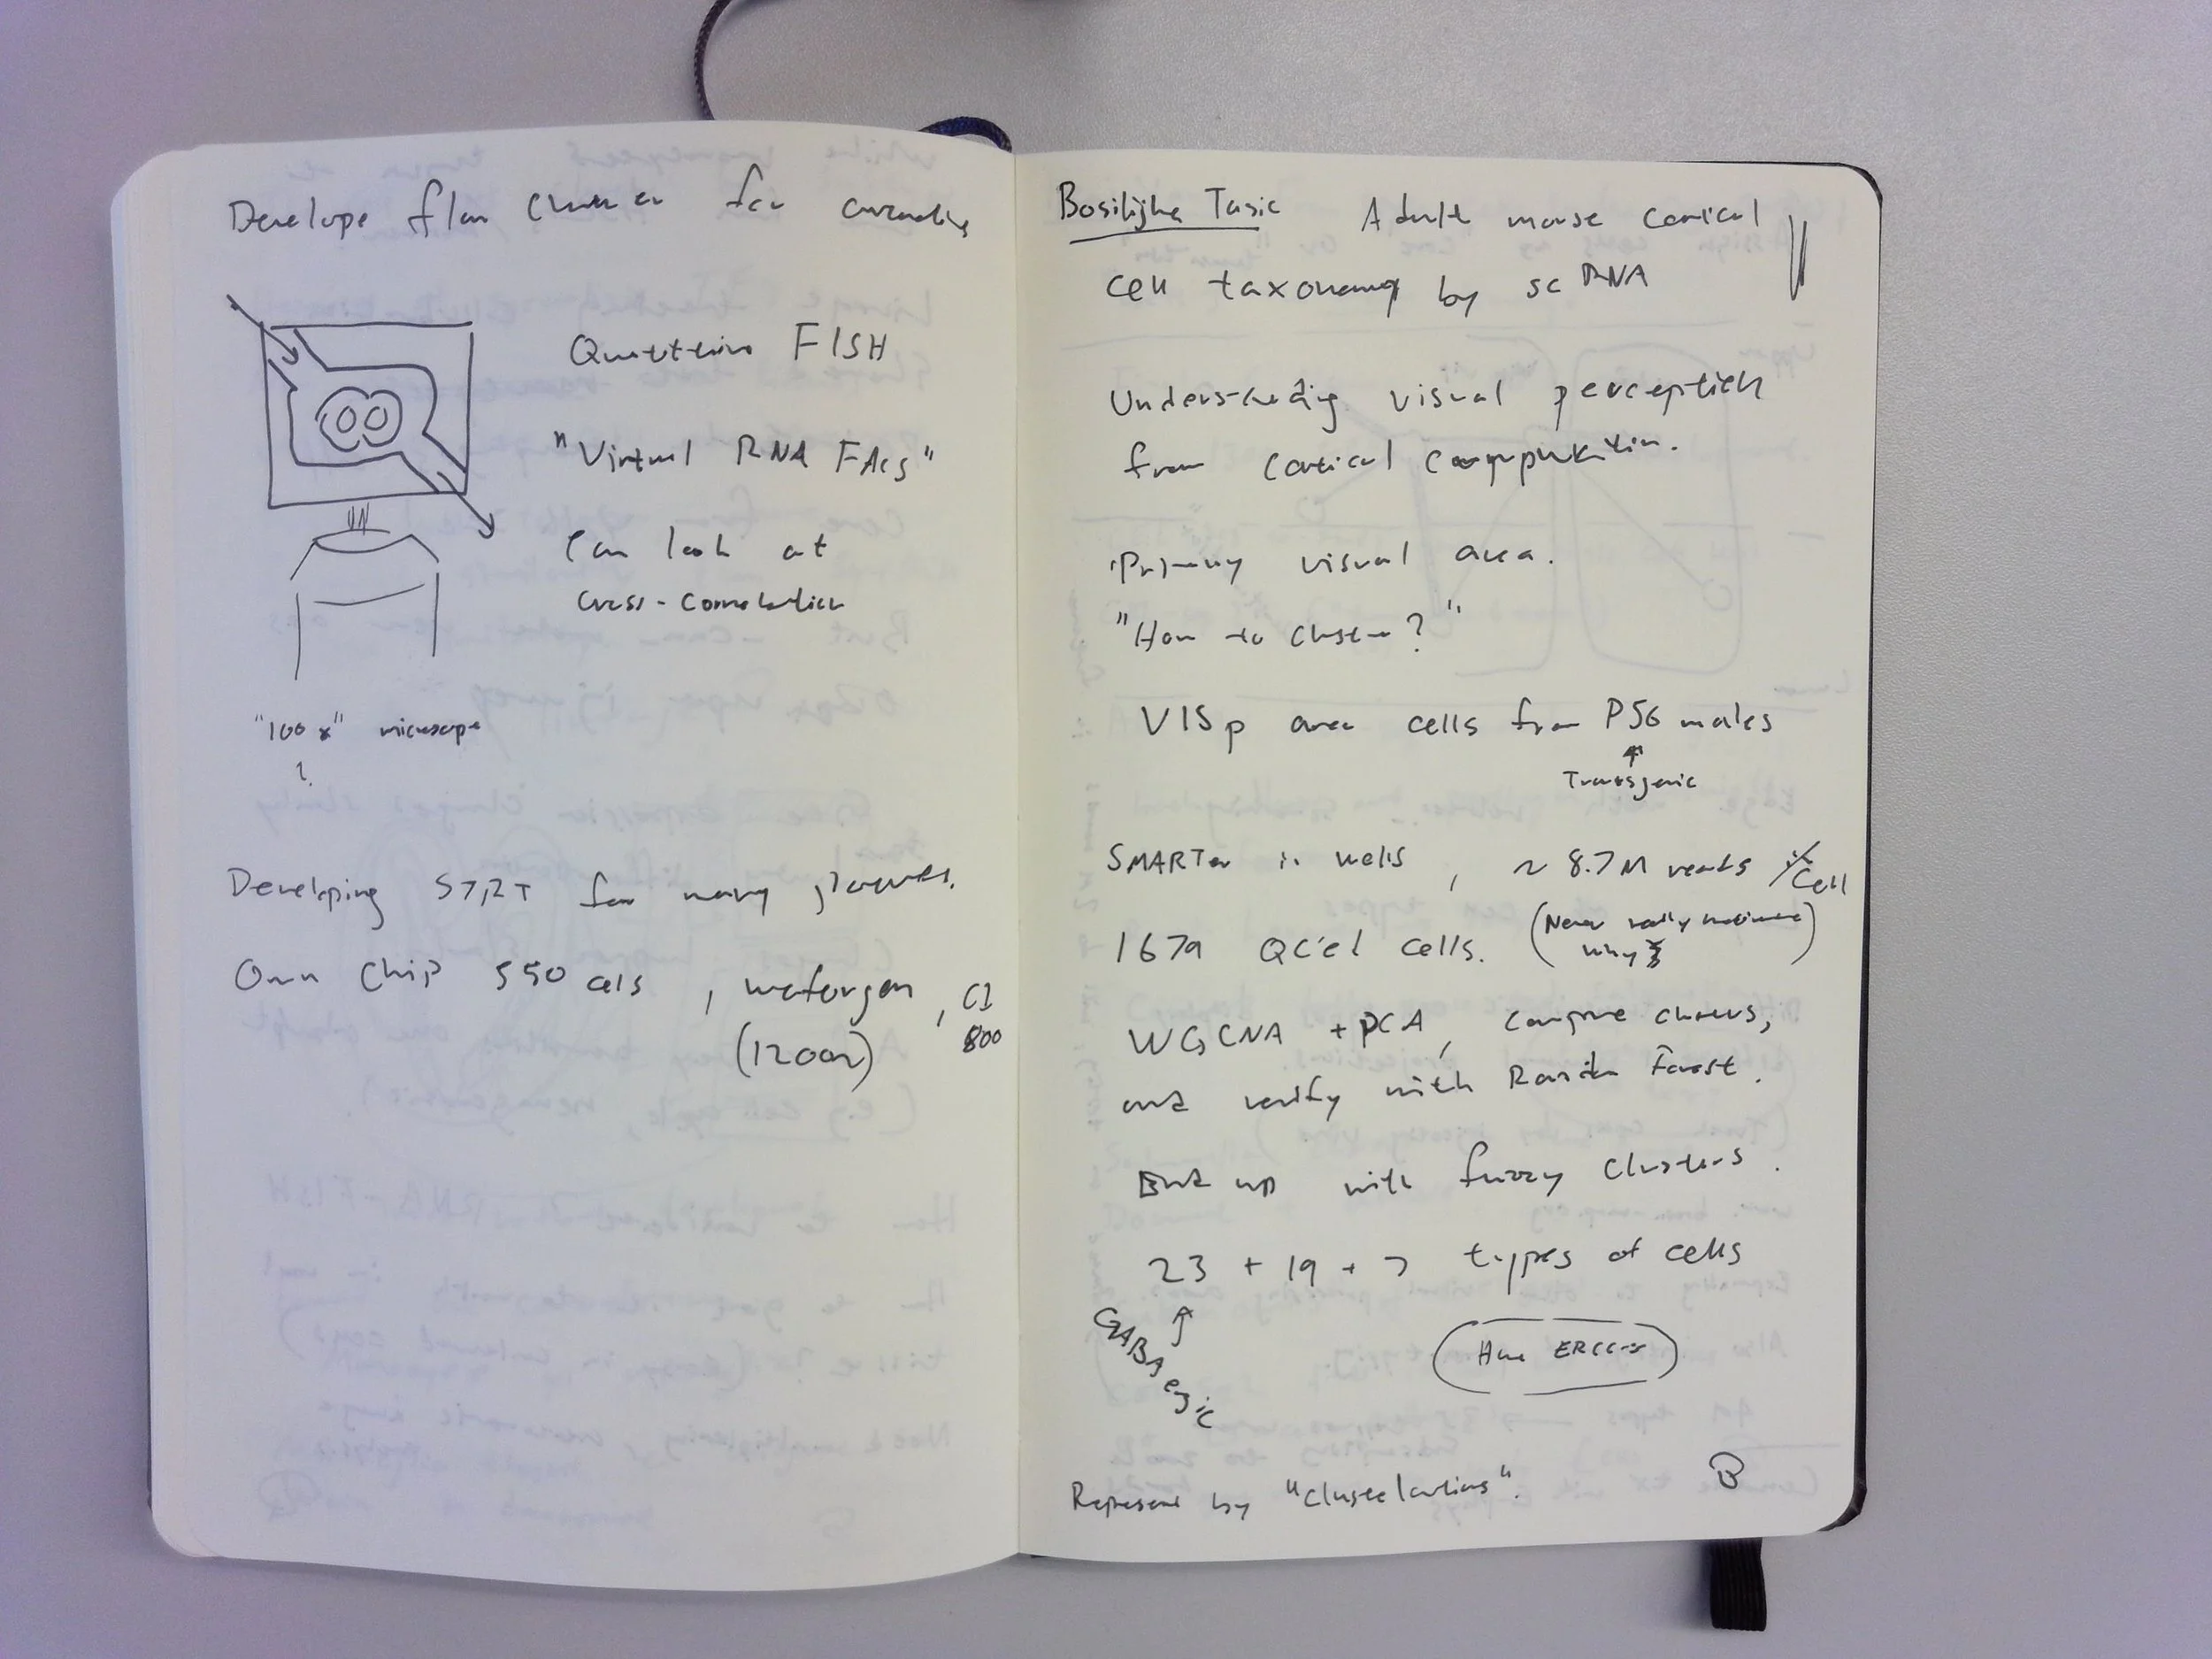 Develope flow chamber for
Quantitative FISH
"Virtual RNA FACS"
Can look at
cross-correlation
"100x" microscope
?
Developing STRT for many
Own chip 550 cells, wafergen, C1
(1200) 800
Bosilijka Tasic Adult mouse cortical
cell taxonomy by sc RNA
Understanding visual perception
from cortical computation.
Primary visual area.
"How to cluster?"
VISp area cells from P56 males
↑
Transgenic
SMARTer in wells, ~ 8.7M reads /cell
1679 QC'ed cells. (Never really
why)
WGCNA + PCA, compare clusters,
and verify with Random Forest.
End up with fuzzy clusters.
23 + 19 + 7 types of cells
↑
GABAergic
Have ERCC-s
Represent by "Clustellations".